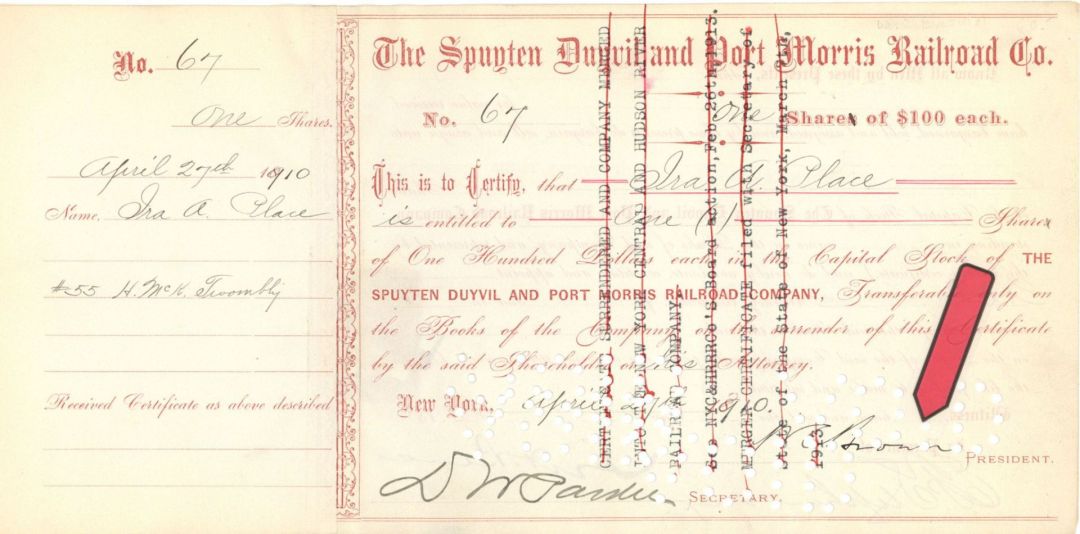 No. 67
One Shares.
April 27th 1910
Name, Ira A. Place
#55 H. McK. Twombly
Received Certificate as above described
The Spuyten Duyvil and Port Morris Railroad Co.
No. 67 One Shares of $100 each.
This is to Certify, that Ira A. Place
is entitled to One (1) Shares
of One Hundred Dollars each in the Capital Stock of THE
SPUYTEN DUYVIL AND PORT MORRIS RAILROAD COMPANY, Transferable only on
the Books of the Company on the surrender of this Certificate
by the said Shareholder or his Attorney.
New York, April 27th 1910.
PRESIDENT.
D W Pardee SECRETARY.
CERTIFICATE SURRENDERED AND COMPANY MERGED
INTO NEW YORK CENTRAL AND HUDSON RIVER
RAILROAD COMPANY.
See NYC&HRRRCO'S Board action, Feb 26th, 1913.
MERGER CERTIFICATE filed with Secretary of
State of the State of New York, March
1913